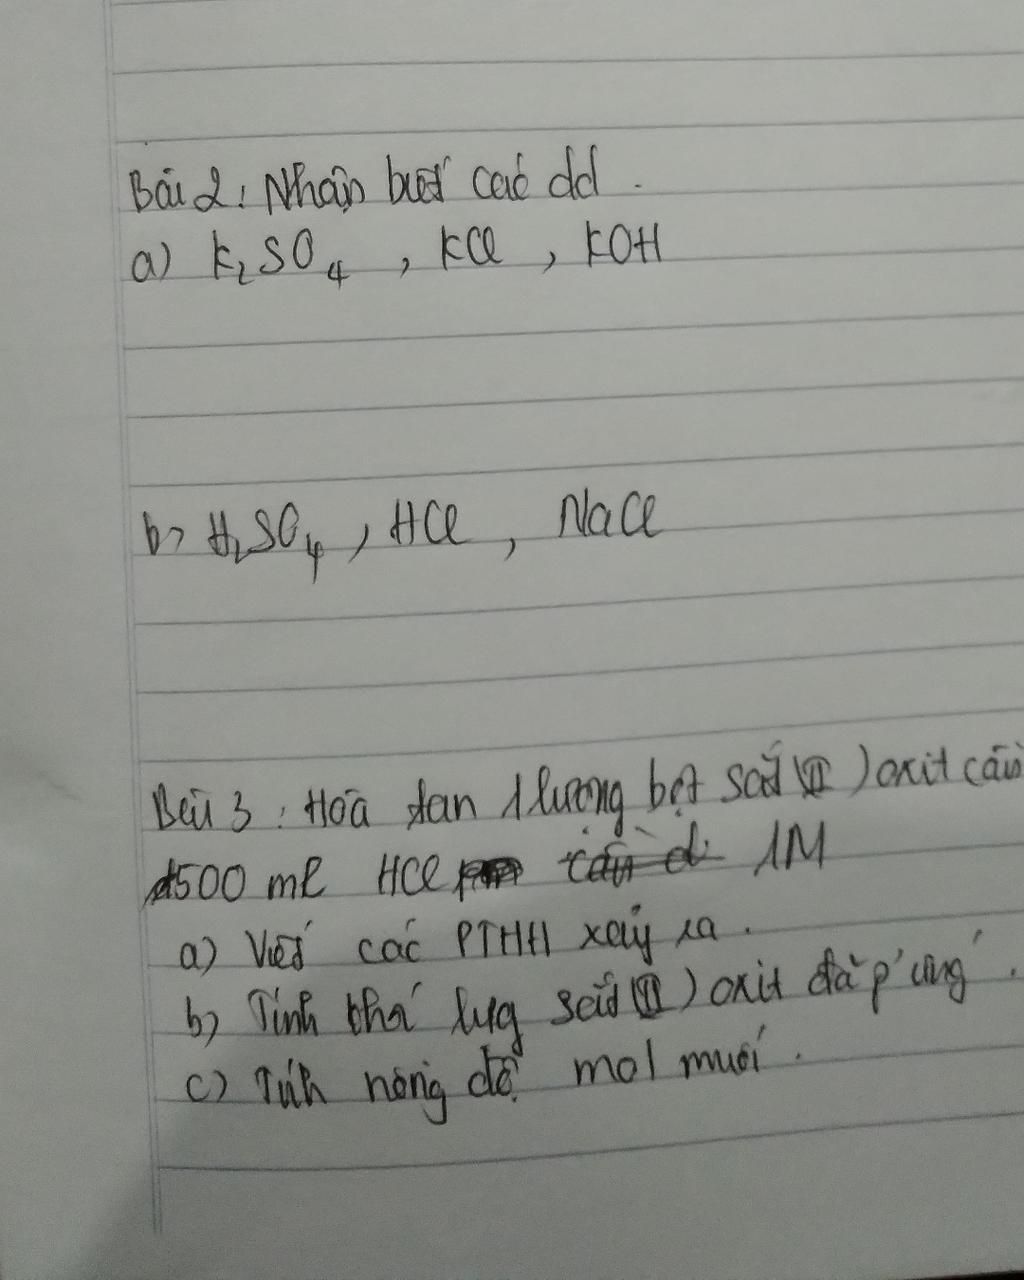 Bài 2: Nhận biết các dd.
a) K₂SO₄, KCl, KOH
b) H₂SO₄, HCl, NaCl
Bài 3: Hoà tan 1 lượng bột sắt (II) oxit cần
500 ml HCl 1M
a) Viết các PTHH xảy ra.
b) Tính khối lượng sắt (II) oxit đã p'ứng.
c) Tính nồng độ mol muối.